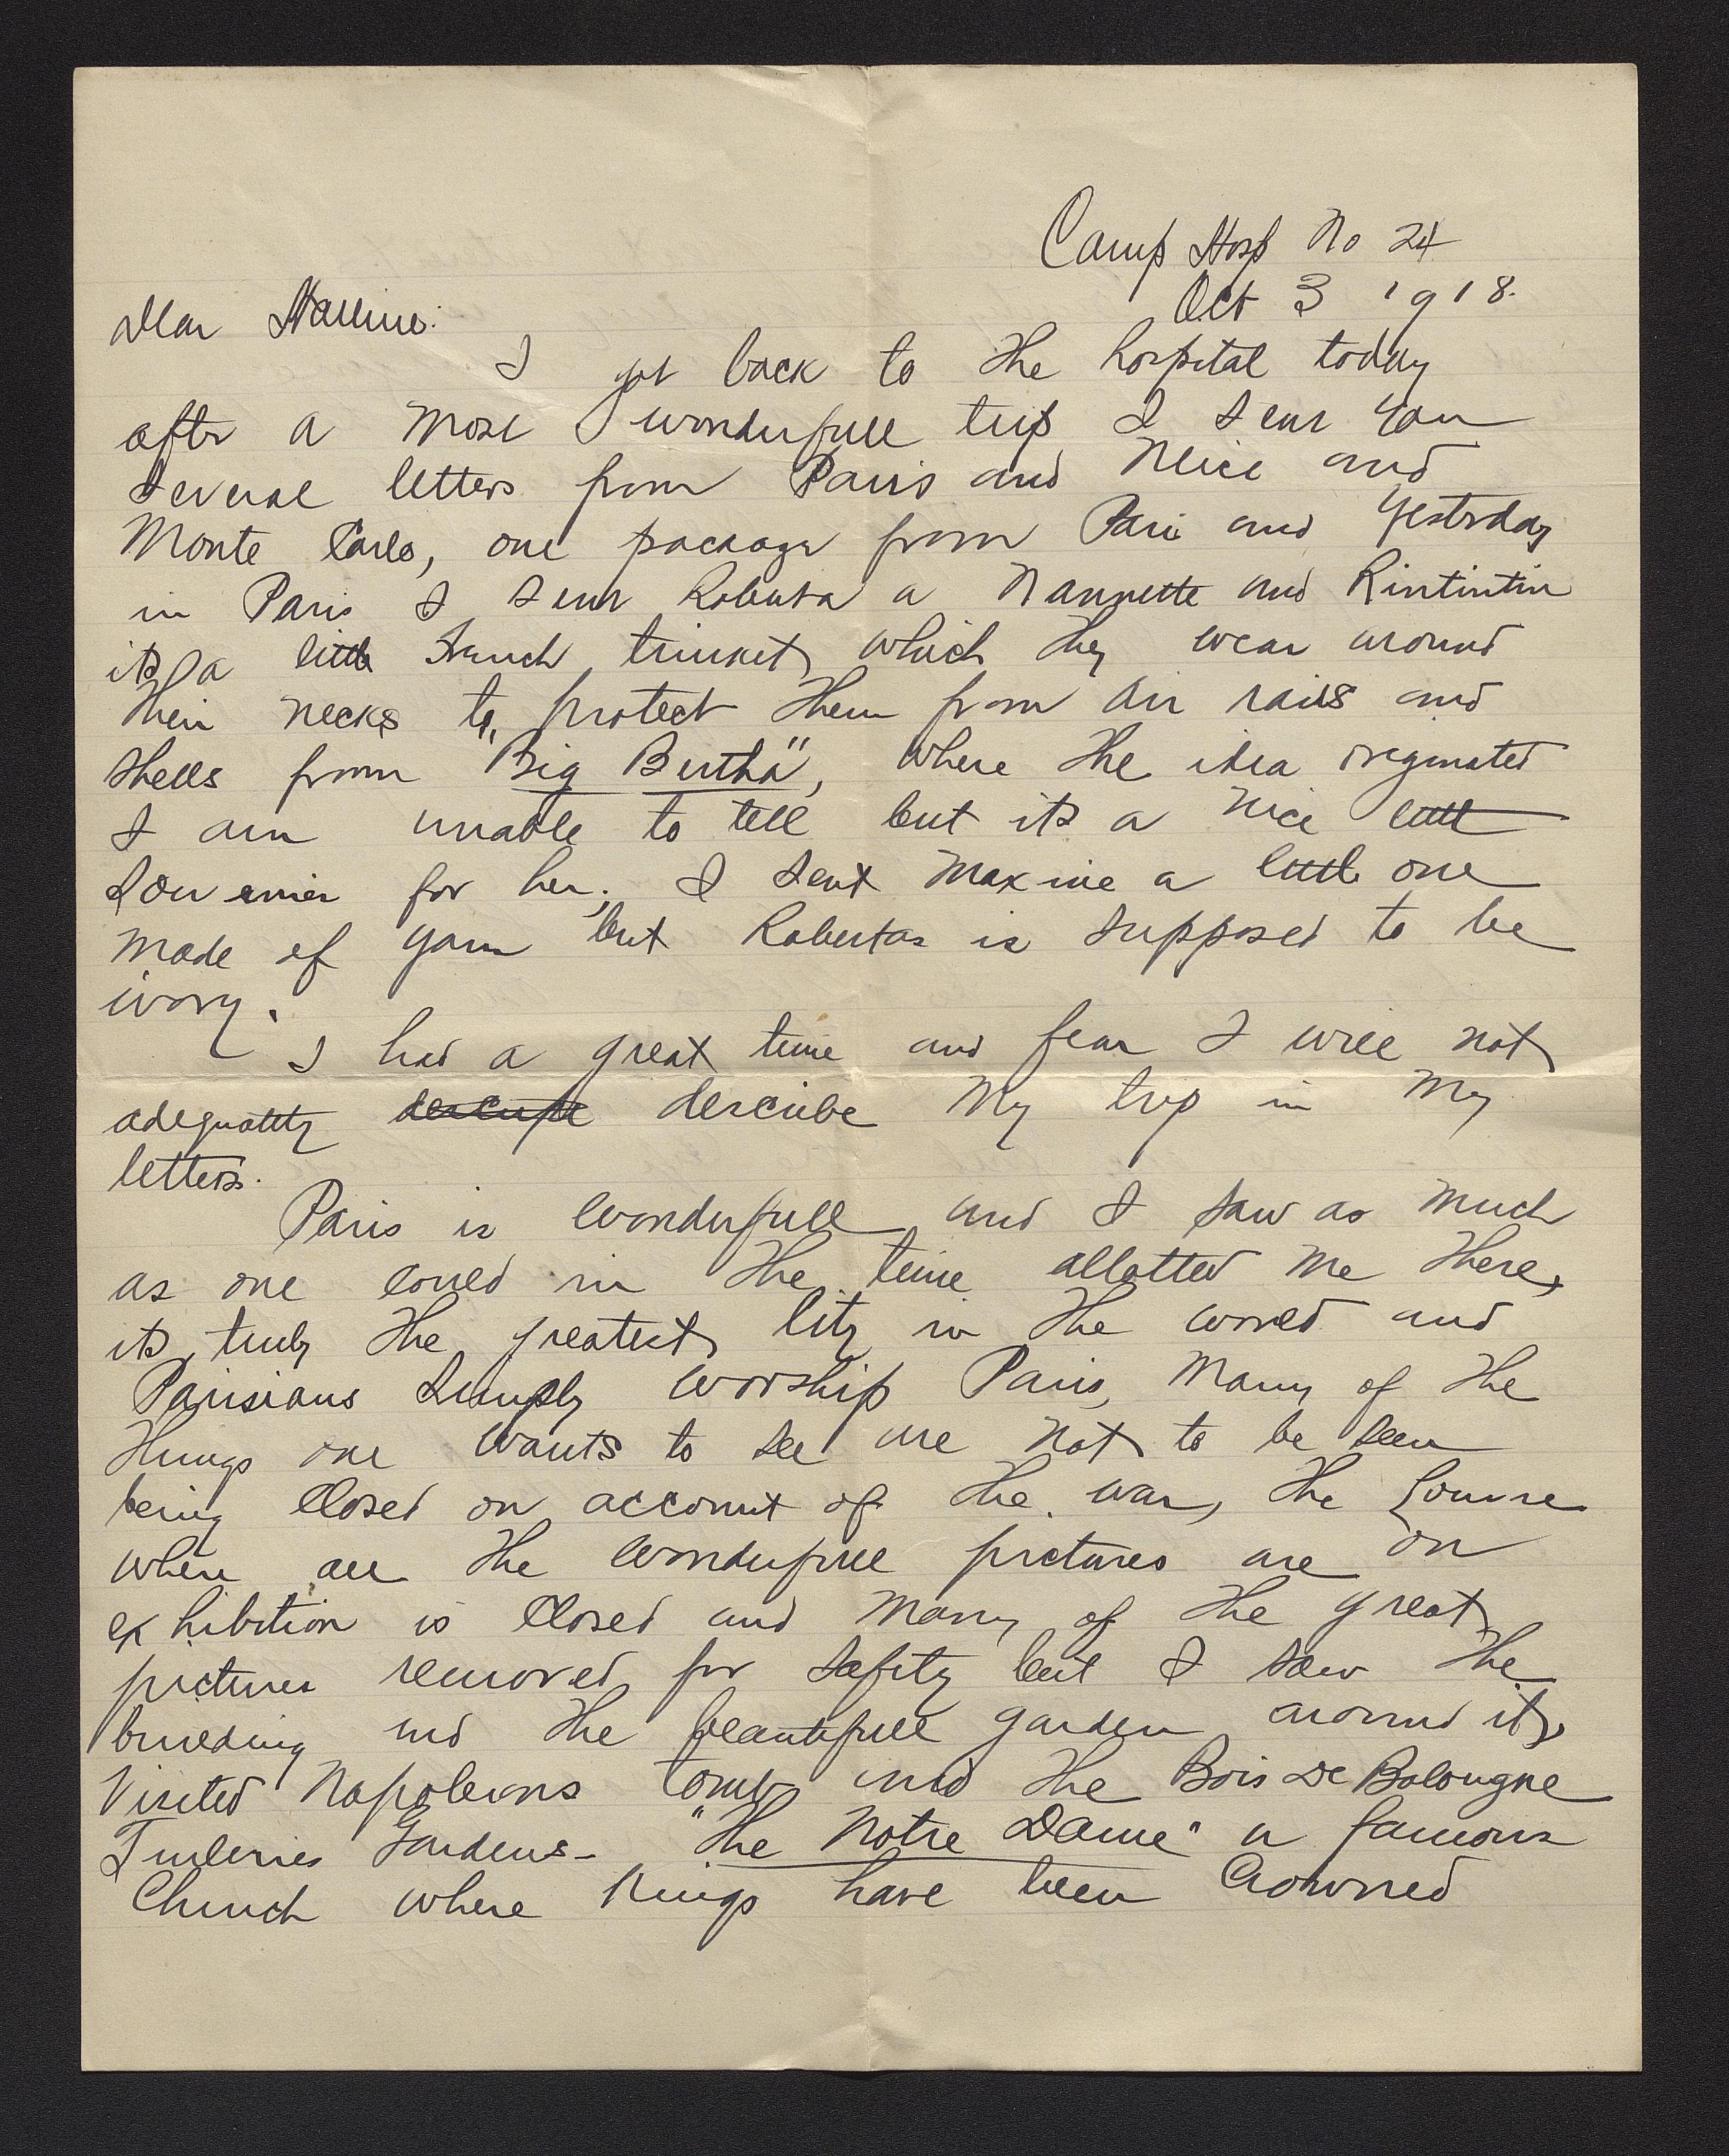 Camp Hosp No 24
Oct 3 1918.
Dear
I got back to the hospital today
after a most wonderfull trip I sent you
several letters from Paris and Neice and
Monte Carlo, one package from Paris and yesterday
in Paris I sent Roberta a Nannette and Rintintin
its a little French trinket which they wear around
their necks to protect them from air raids and
shells from "Big Bertha", where the idea originated
I am unable to tell but its a nice little
souvenier for her; I sent Maxine a little one
made of yarn but Robertas is supposed to be
ivory.
I had a great time and fear I will not
adequately describe my trip in my
letters.
Paris is wonderfull and I saw as much
as one could in the time allotted me there,
its truly the greatest city in the world and
Parisians simply worship Paris, Many of the
things one wants to see are not to be seen
being closed on account of the war, the Louvre
where all the wonderfull pictures are on
exhibition is closed and many of the great
pictures removed for safity but I saw the
building and the beautifull garden around it,
Visited Napoleons tomb and the Bois De Bolougne
Tuileries Gardens - "The Notre Dame" a famous
Church where Kings have been Crowned